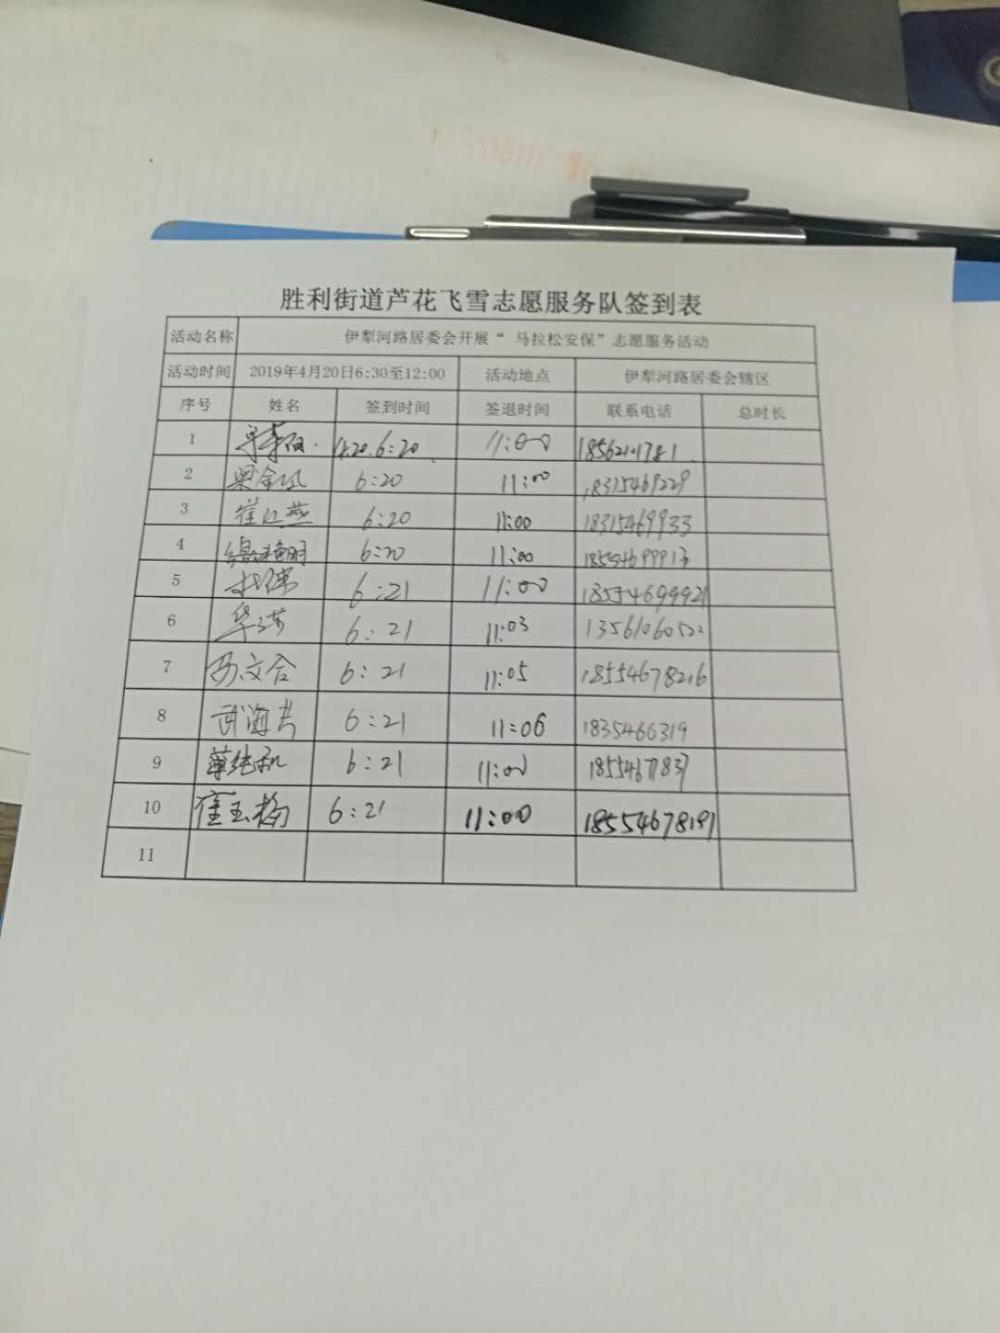 胜利街道芦花飞雪志愿服务队签到表
活动名称 伊犁河路居委会开展“ 马拉松安保”志愿服务活动
活动时间 2019年4月20日6:30至12:00 活动地点 伊犁河路居委会辖区
序号 姓名 签到时间 签退时间 联系电话 总时长
1 4.20.6:20 11:00
2 6:20 11:00 18315469229
3 崔江燕 6:20 11:00 18315469933
4 6:20 11:00 18554699913
5 6:21 11:00 18554699921
6 6:21 11:03
7 苏文合 6:21 11:05 18554678216
8 武海共 6:21 11:06 1835466319
9 薄纯和 6:21 11:00
10 崔玉梅 6:21 11:00 18554678191
11